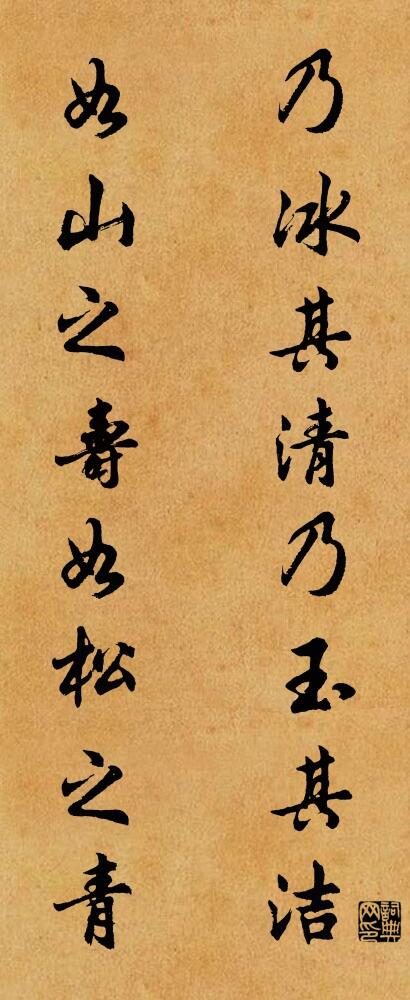 乃冰其清乃玉其洁
如山之壽如松之青